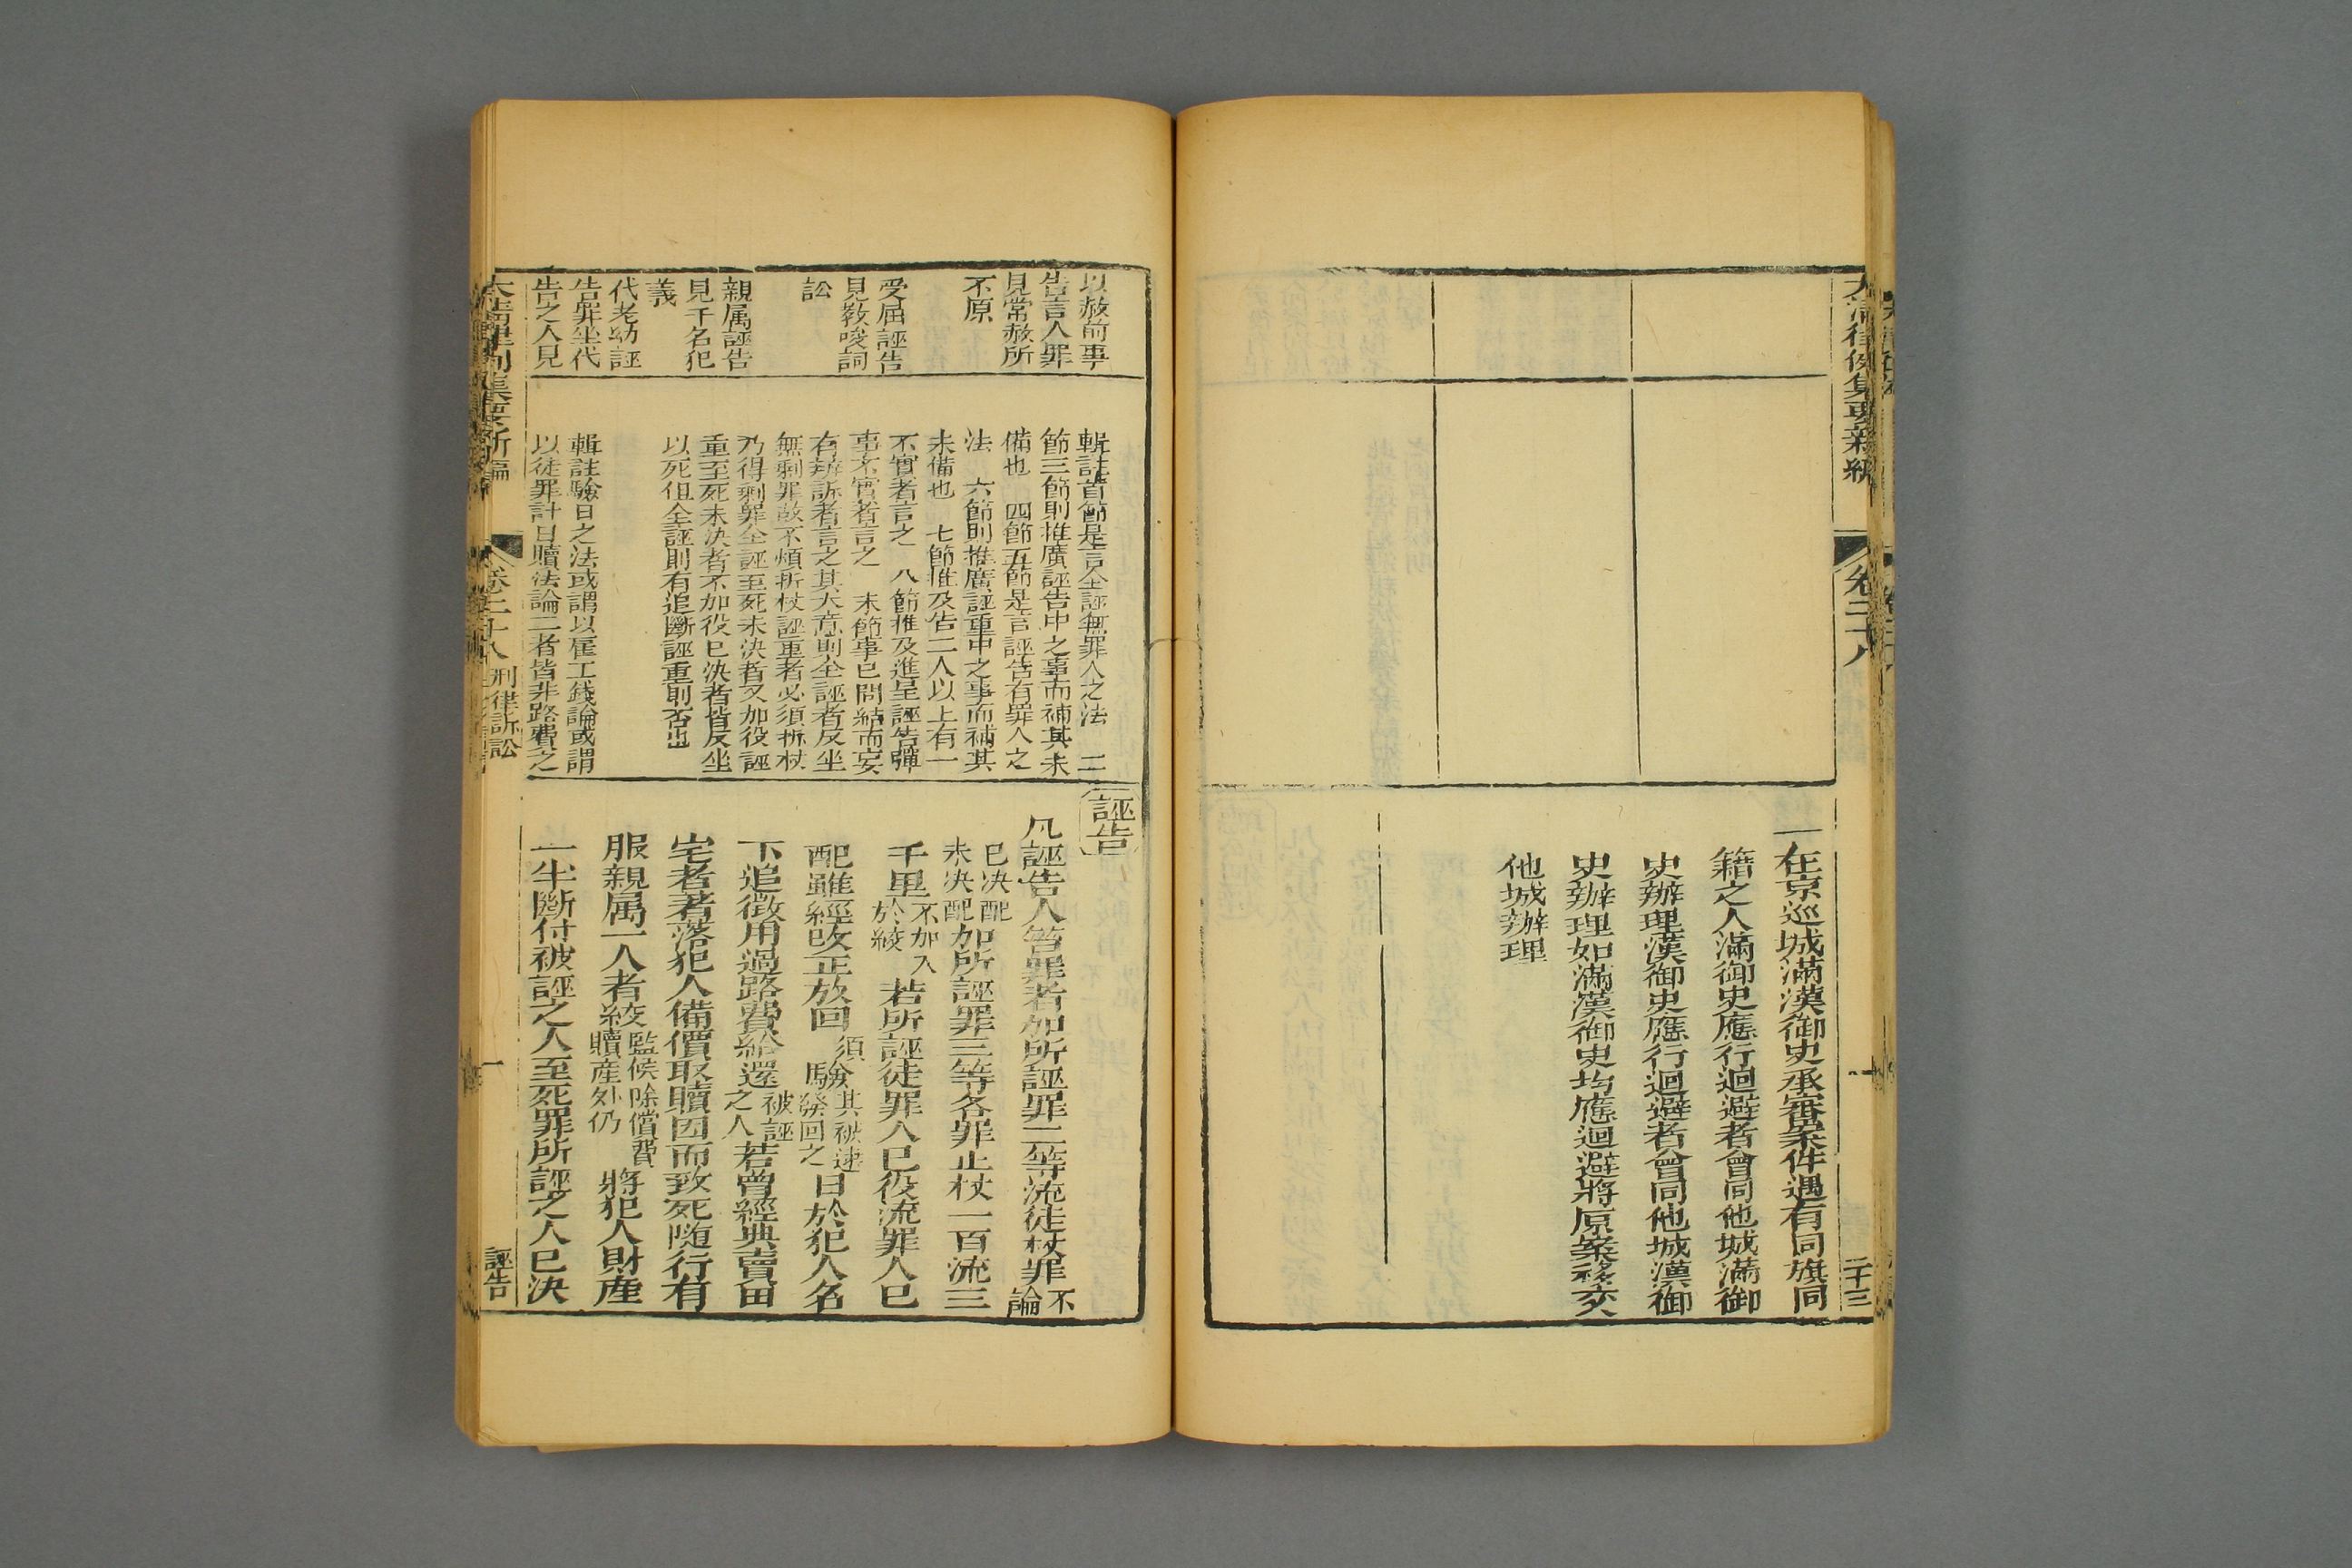 大清律例集要新編
卷二十八
二十三
一在京巡城滿漢御史承審案件遇有同旗同
籍之人滿御史應行迴避者會同他城滿御
史辦理漢御史應行迴避者會同他城漢御
史辦理如滿漢御史均應迴避將原案移交
他城辦理
以赦前事
告言人罪
見常赦所
不原
受屈誣告
見教唆詞
訟
親属誣告
見干名犯
義
代老幼誣
告罪坐代
告之人見
輯註首節是言全誣無罪人之法 二
節三節則推廣誣告中之事而補其未
備也 四節五節是言誣告有罪人之
法 六節則推廣誣重中之事而補其
未備也 七節推及告二人以上有一
不實者言之 八節推及進呈誣告彈
事不實者言之 末節事已問結而妄
有辨訴者言之其大意則全誣者反坐
無剩罪故不煩折杖誣重者必須折杖
乃得剩罪全誣至死未決者又加役誣
重至死未決者不加役已決者皆反坐
以死但全誣則有追斷誣重則否也
輯註驗日之法或謂以雇工錢論或謂
以徒罪計日贖法論二者皆非路費之
誣告
凡誣告人笞罪者加所誣罪二等流徒杖罪不論
已決配未決配加所誣罪三等各罪止杖一百流三
千里不加入於絞若所誣徒罪人已役流罪人已
配雖經改正放回須驗其被逮發回之日於犯人名
下追徵用過路費給還被誣之人若曾經典賣田
宅者著落犯人備價取贖因而致死隨行有
服親属一人者絞監候除償費贖產外仍將犯人財產
一半斷付被誣之人至死罪所誣之人已決
大清律例集要新編
卷二十八
刑律訴訟
一
誣告